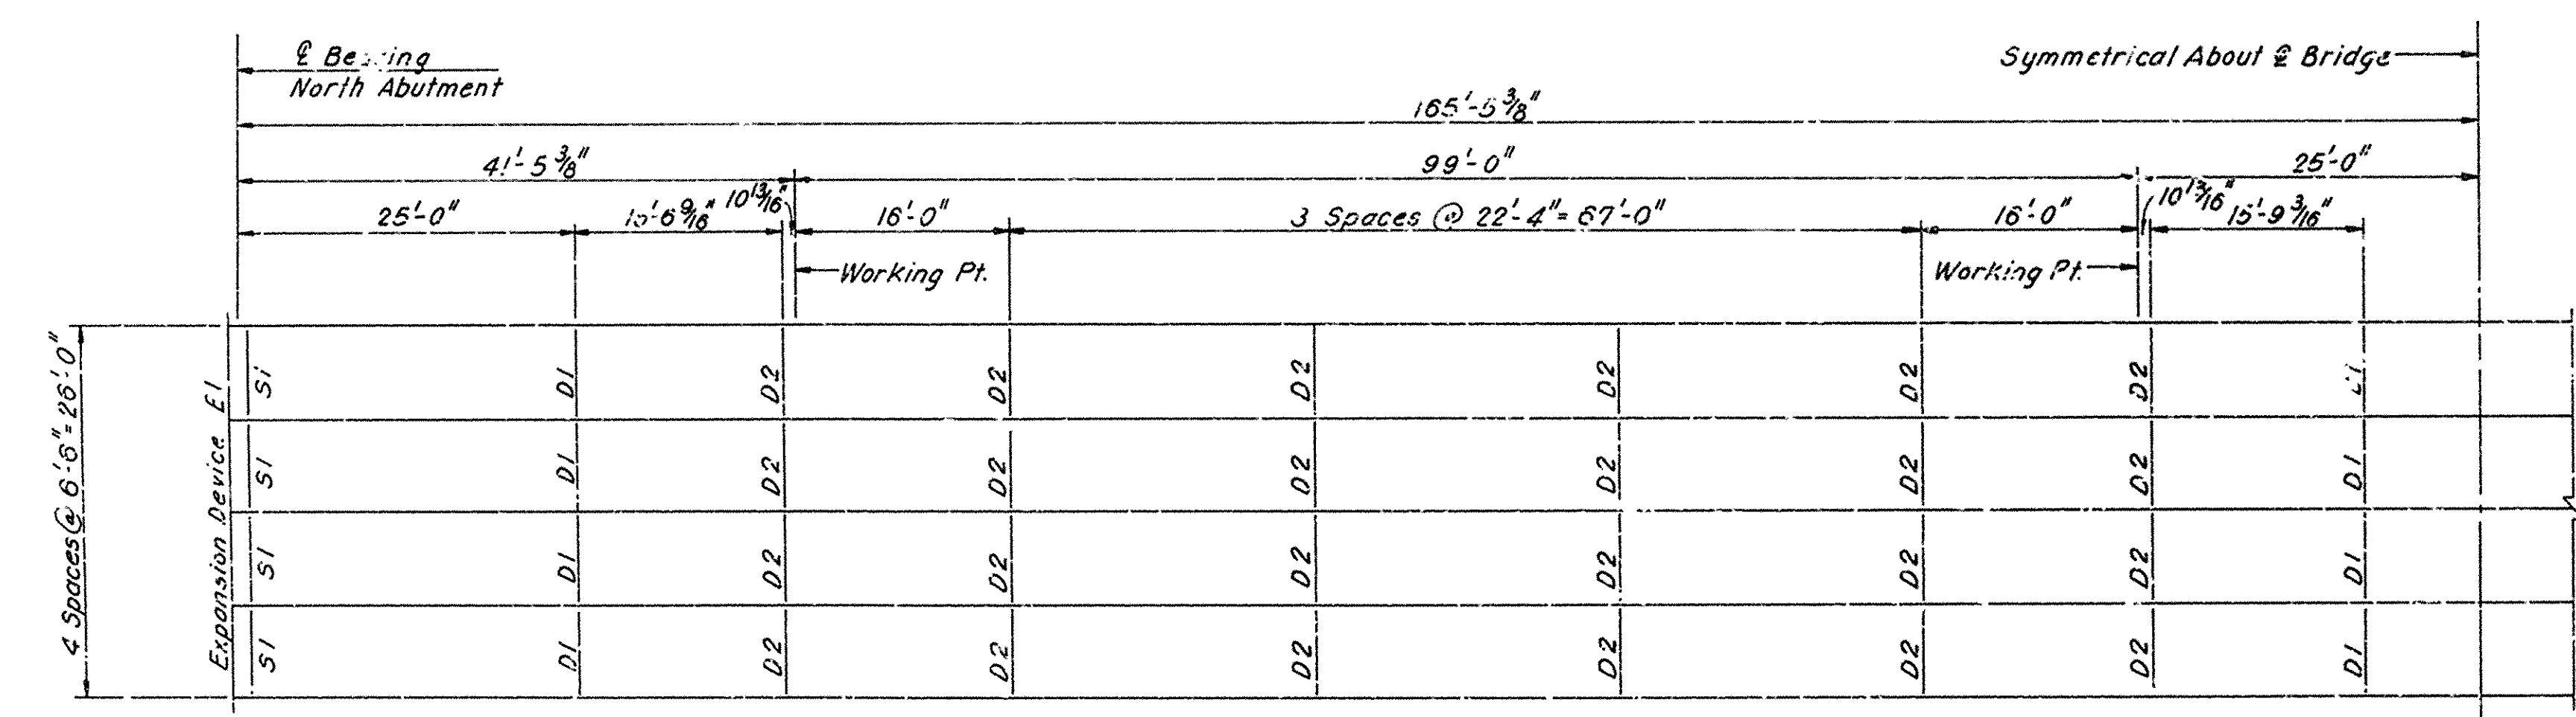 ℄ Bearing
North Abutment
Symmetrical About ℄ Bridge
165'-5 3/8"
41'-5 3/8"
99'-0"
25'-0"
25'-0"
15'-6 9/16"
10 13/16"
16'-0"
3 Spaces @ 22'-4" = 67'-0"
16'-0"
10 13/16"
15'-9 3/16"
Working Pt.
Working Pt.
4 Spaces @ 6'-6" = 26'-0"
Expansion Device E1
S1 D1 D2 D2 D2 D2 D2 D2
S1 D1 D2 D2 D2 D2 D2 D2 D1
S1 D1 D2 D2 D2 D2 D2 D2 D1
S1 D1 D2 D2 D2 D2 D2 D2 D1